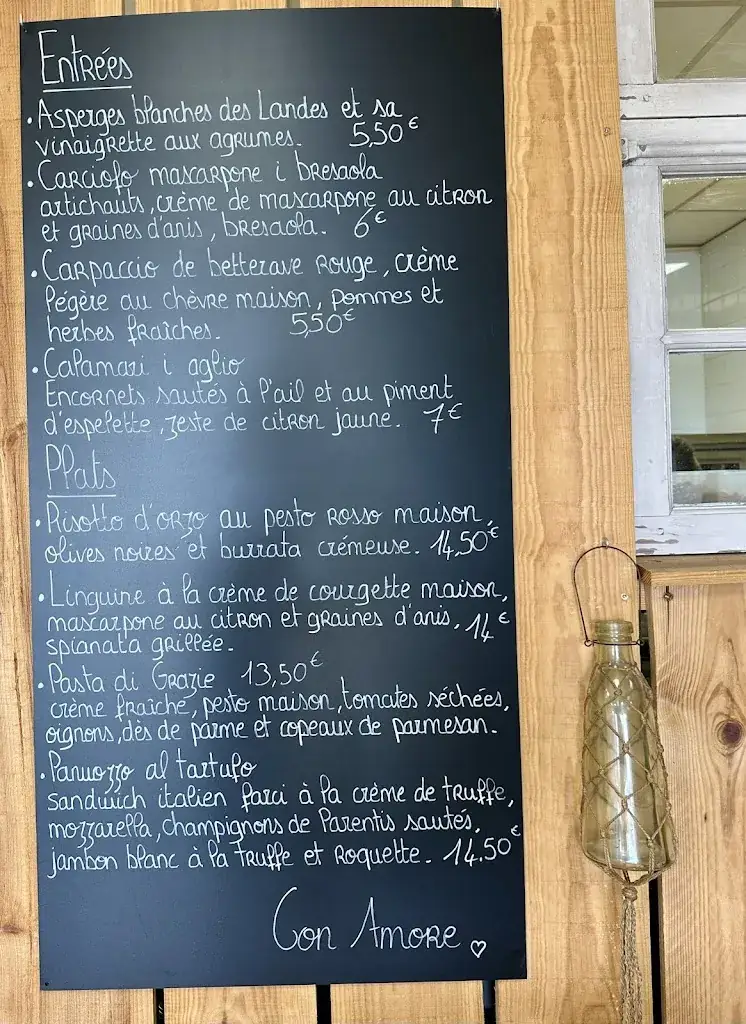 Entrées
• Asperges blanches des Landes et sa
vinaigrette aux agrumes. 5,50€
• Carciofo mascarpone i bresaola
artichauts, crème de mascarpone au citron
et graines d'anis, bresaola. 6€
• Carpaccio de betterave rouge, crème
légère au chèvre maison, pommes et
herbes fraîches. 5,50€
• Calamari i aglio
Encornets sautés à l'ail et au piment
d'espelette, zeste de citron jaune. 7€
Plats
• Risotto d'orzo au pesto rosso maison,
olives noires et burrata crémeuse. 14,50€
• Linguine à la crème de courgette maison,
mascarpone au citron et graines d'anis, 14€
spianata grillée.
• Pasta di Grazie 13,50€
crème fraîche, pesto maison, tomates séchées,
oignons, dès de parme et copeaux de parmesan.
• Panuozzo al tartufo
sandwich italien farci à la crème de truffe,
mozzarella, champignons de Parentis sautés,
jambon blanc à la truffe et roquette. 14.50€
Con Amore ♡